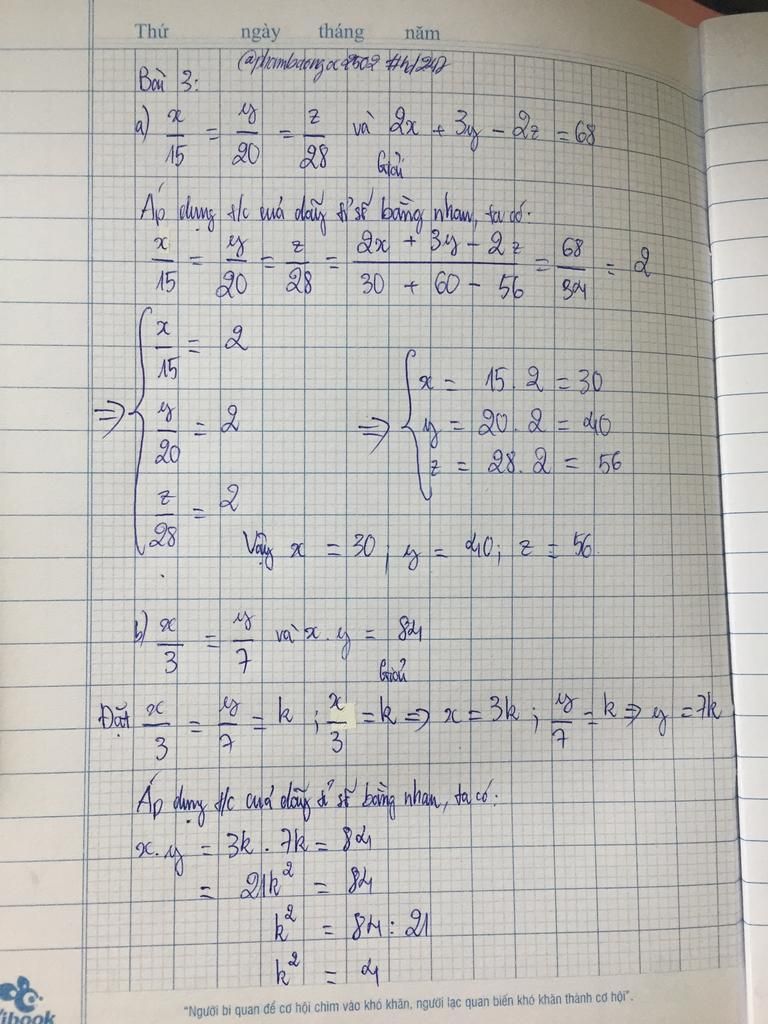 Thứ ngày tháng năm
Bài 3:
a) x/15 = y/20 = z/28 và 2x + 3y - 2z = 68
Giải
Áp dụng t/c cuả dãy tỉ số bằng nhau, ta có:
x/15 = y/20 = z/28 = (2x + 3y - 2z)/(30 + 60 - 56) = 68/34 = 2
=> { x/15 = 2
y/20 = 2
z/28 = 2
=> { x = 15.2 = 30
y = 20.2 = 40
z = 28.2 = 56
Vậy x = 30; y = 40; z = 56
b) x/3 = y/7 và x.y = 84
Giải
Đặt x/3 = y/7 = k; x/3 = k => x = 3k; y/7 = k => y = 7k
Áp dụng t/c cuả dãy tỉ số bằng nhau, ta có:
x.y = 3k.7k = 84
= 21k² = 84
k² = 84 : 21
k² = 4
"Người bi quan để cơ hội chìm vào khó khăn, người lạc quan biến khó khăn thành cơ hội".